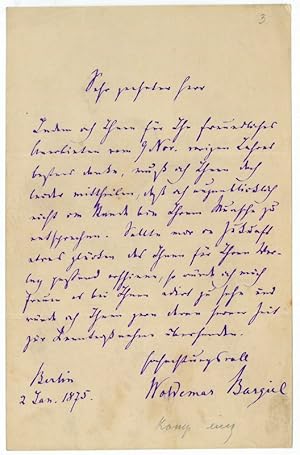 3.
Sehr geehrter Herr
Indem ich Ihnen für Ihr freundliches
Anerbieten vom 9 Nov. vorigen Jahres
bestens danke, muß ich Ihnen doch
leider mittheilen, daß ich augenblicklich
nicht im Stande bin Ihrem Wunsche zu
entsprechen. Sollte mir in Zukunft
etwas glücken das Ihnen für Ihren Ver-
lag passend erschiene, so würde ich mich
freuen es bei Ihnen edirt zu sehn und
würde ich Ihnen gern davon seiner Zeit
zur Kenntnißnahme übersenden.
Hochachtungsvoll
Berlin
2 Jan. 1875.
Woldemar Bargiel